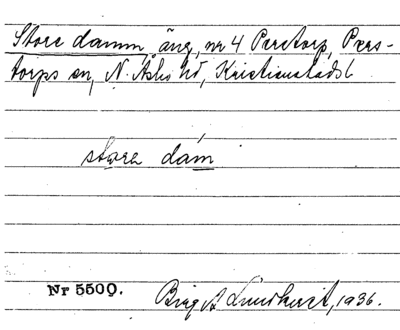 Store damm, äng, nr 4 Perstorp, Pers-
torps sn, N. Åsbo hd, Kristianstads l
stora dam
Nr 5500. Birgit Lundkvist, 1936.